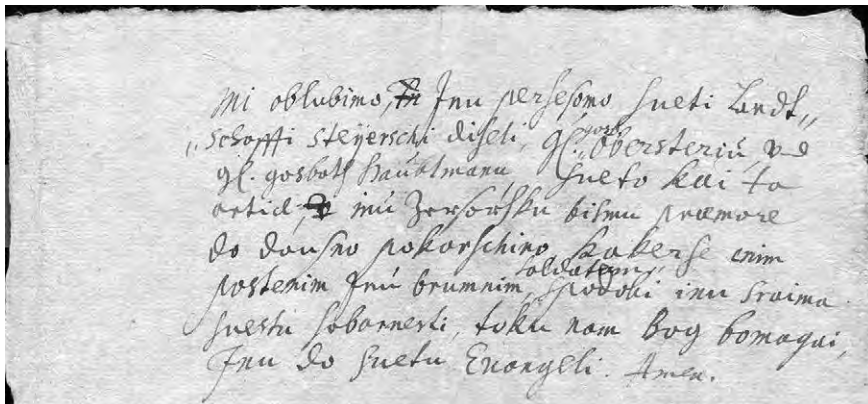 Mi oblubimo, Inu perseſemo ſueti Landt„
„Schafffi Steÿerschi diſeli, gl. gosp. Obersteriú, vnd
gl. gosboth Haúbtmanu ſueto kai ta
articl, inú Zersorsku bismu præmore
do dousno pokorschino, kakerse enim
postenim Inú brumnim Soldatom, spodobi inu sraima
ſuestu ſobarnesti, toku nam bog bomagai,
Inu do ſuetu Euangeli. Amen.